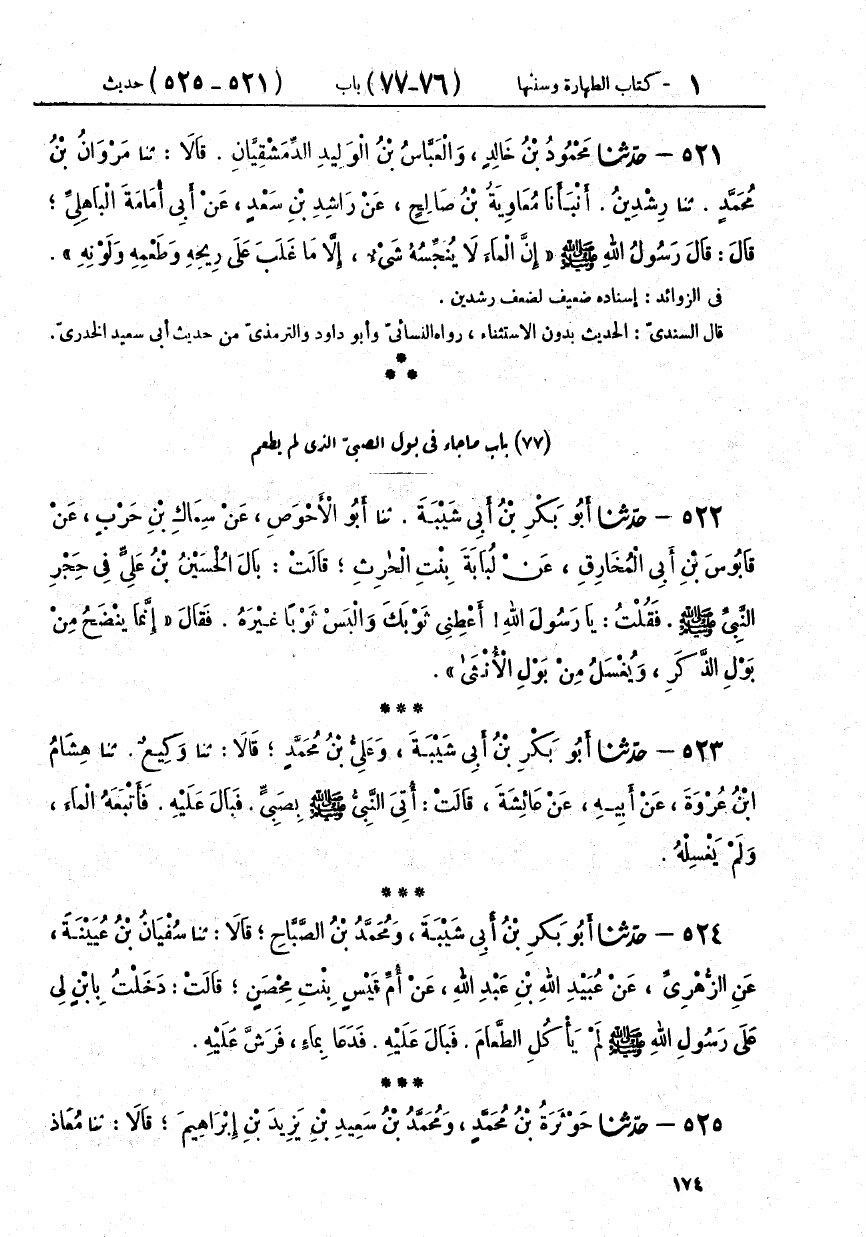 ١ - كتاب الطهارة وسننها (٧٦-٧٧) باب (٥٢١ - ٥٢٥) حديث
٥٢١ - حدّثنا مَحْمُودُ بْنُ خَالِدٍ، وَالْعَبَّاسُ بْنُ الْوَلِيدِ الدِّمَشْقِيَّانِ. قَالَا: ثنا مَرْوَانُ بْنُ
مُحَمَّدٍ. ثنا رِشْدِينُ. أَنْبَأَنَا مُعَاوِيَةُ بْنُ صَالِحٍ، عَنْ رَاشِدِ بْنِ سَعْدٍ، عَنْ أَبِي أُمَامَةَ الْبَاهِلِيِّ؛
قَالَ: قَالَ رَسُولُ اللهِ ﷺ «إِنَّ الْمَاءَ لَا يُنَجِّسُهُ شَيْءٌ، إِلَّا مَا غَلَبَ عَلَى رِيحِهِ وَطَعْمِهِ وَلَوْنِهِ».
فى الزوائد: إسناده ضعيف لضعف رشدين.
قال السندىّ: الحديث بدون الاستثناء، رواه النسائىّ وأبو داود والترمذىّ من حديث أبى سعيد الخدرىّ.
***
(٧٧) باب ماجاء فى بول الصبىّ الذى لم يطعم
٥٢٢ - حدّثنا أَبُو بَكْرِ بْنُ أَبِي شَيْبَةَ. ثنا أَبُو الْأَحْوَصِ، عَنْ سِمَاكِ بْنِ حَرْبٍ، عَنْ
قَابُوسَ بْنِ أَبِي الْمُخَارِقِ، عَنْ لُبَابَةَ بِنْتِ الْحٰرِثِ؛ قَالَتْ: بَالَ الْحُسَيْنُ بْنُ عَلِيٍّ فِي حِجْرِ
النَّبِيِّ ﷺ. فَقُلْتُ: يَا رَسُولَ اللهِ! أَعْطِنِي ثَوْبَكَ وَالْبَسْ ثَوْبًا غَيْرَهُ. فَقَالَ «إِنَّمَا يُنْضَحُ مِنْ
بَوْلِ الذَّكَرِ، وَيُغْسَلُ مِنْ بَوْلِ الْأُنْثَىٰ».
***
٥٢٣ - حدّثنا أَبُو بَكْرِ بْنُ أَبِي شَيْبَةَ، وَعَلِيُّ بْنُ مُحَمَّدٍ؛ قَالَا: ثنا وَكِيعٌ. ثنا هِشَامُ
ابْنُ عُرْوَةَ، عَنْ أَبِيهِ، عَنْ عَائِشَةَ، قَالَتْ: أُتِىَ النَّبِيُّ ﷺ بِصَبِيٍّ. فَبَالَ عَلَيْهِ. فَأَتْبَعَهُ الْمَاءَ،
وَلَمْ يَغْسِلْهُ.
***
٥٢٤ - حدّثنا أَبُو بَكْرِ بْنُ أَبِي شَيْبَةَ، وَمُحَمَّدُ بْنُ الصَّبَّاحِ؛ قَالَا: ثنا سُفْيَانُ بْنُ عُيَيْنَةَ،
عَنِ الزُّهْرِىِّ، عَنْ عُبَيْدِ اللهِ بْنِ عَبْدِ اللهِ، عَنْ أُمِّ قَيْسٍ بِنْتِ مِحْصَنٍ؛ قَالَتْ: دَخَلْتُ بِابْنٍ لِي
عَلَى رَسُولِ اللهِ ﷺ لَمْ يَأْكُلِ الطَّعَامَ. فَبَالَ عَلَيْهِ. فَدَعَا بِمَاءٍ، فَرَشَّ عَلَيْهِ.
***
٥٢٥ - حدّثنا حَوْثَرَةُ بْنُ مُحَمَّدٍ، وَمُحَمَّدُ بْنُ سَعِيدِ بْنِ يَزِيدَ بْنِ إِبْرَاهِيمَ؛ قَالَا: ثنا مُعَاذُ
١٧٤